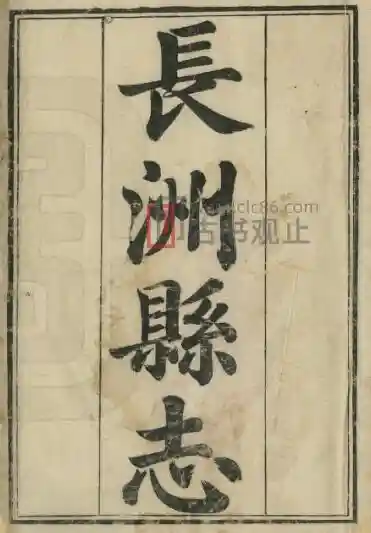 長洲縣志
古书观止
clc86.com